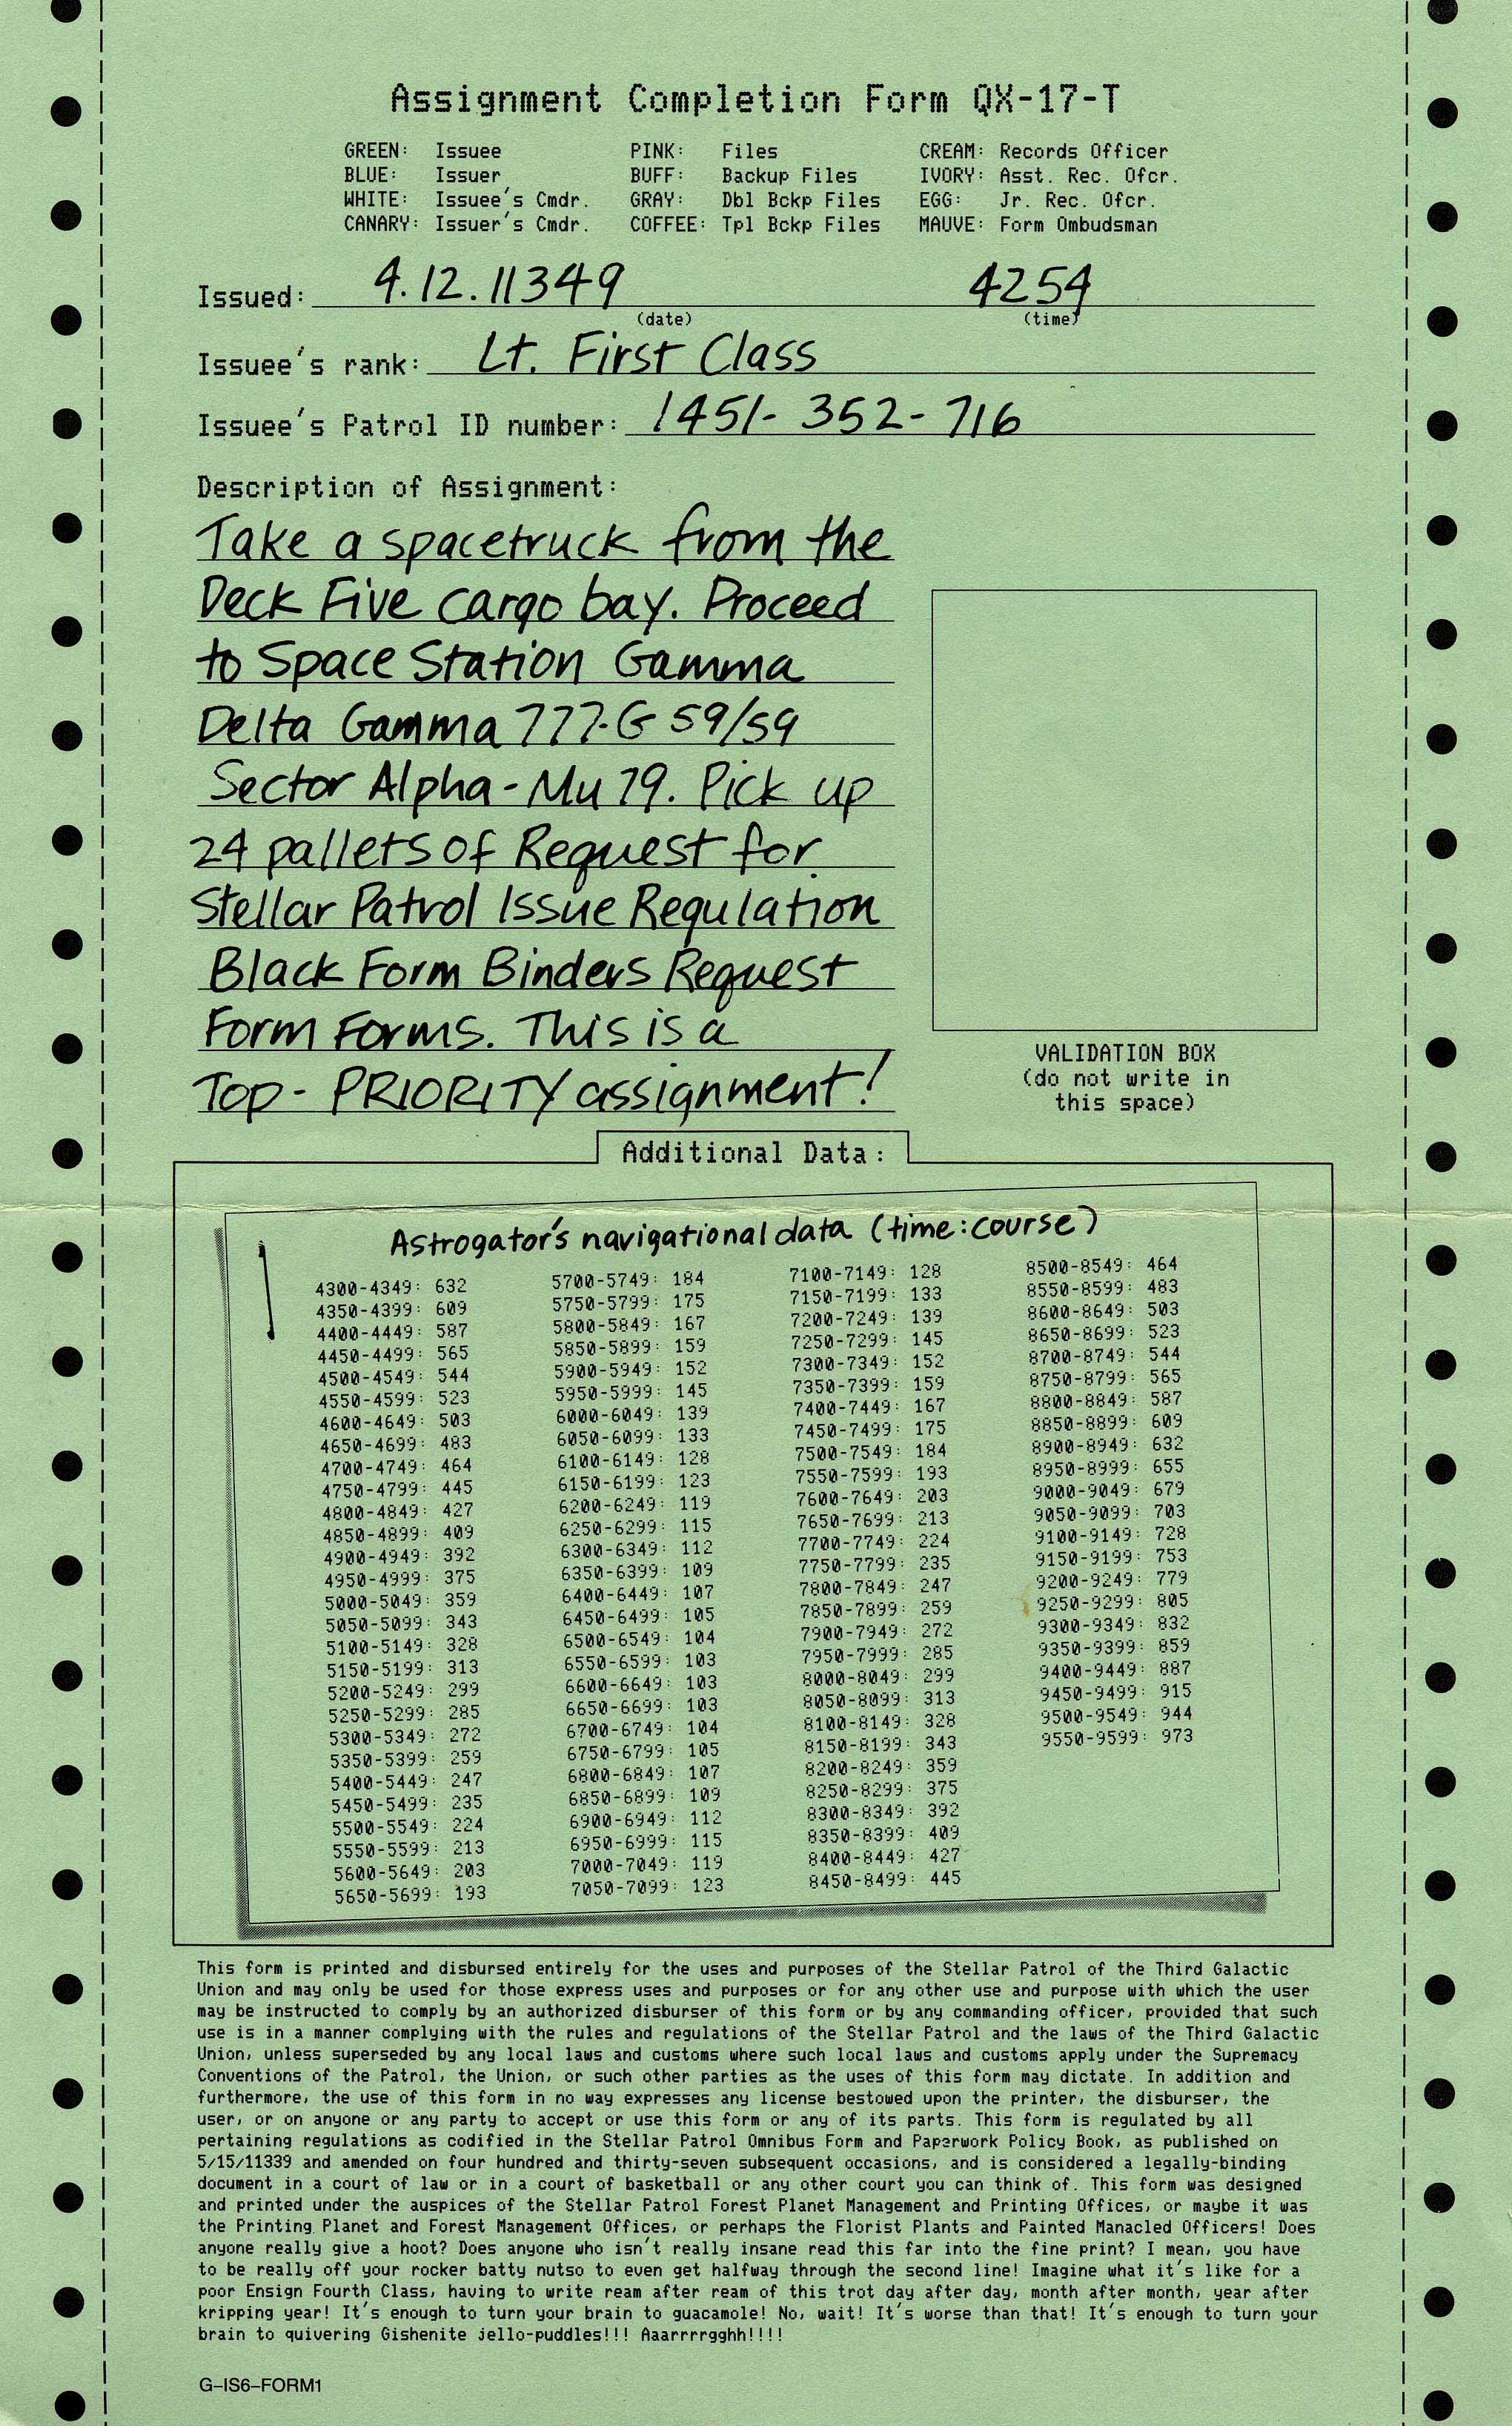 Assignment Completion Form QX-17-T
GREEN: Issuee PINK: Files CREAM: Records Officer
BLUE: Issuer BUFF: Backup Files IVORY: Asst. Rec. Ofcr.
WHITE: Issuee's Cmdr. GRAY: Dbl Bckp Files EGG: Jr. Rec. Ofcr.
CANARY: Issuer's Cmdr. COFFEE: Tpl Bckp Files MAUVE: Form Ombudsman
Issued: 4.12.11349 4254
(date) (time)
Issuee's rank: Lt. First Class
Issuee's Patrol ID number: 1451-352-716
Description of Assignment:
Take a spacetruck from the
Deck Five cargo bay. Proceed
to Space Station Gamma
Delta Gamma 777-G 59/59
Sector Alpha-Mu 79. Pick up
24 pallets of Request for
Stellar Patrol Issue Regulation
Black Form Binders Request
Form Forms. This is a
Top-PRIORITY assignment!
VALIDATION BOX
(do not write in
this space)
Additional Data:
Astrogator's navigational data (time:course)
4300-4349: 632
4350-4399: 609
4400-4449: 587
4450-4499: 565
4500-4549: 544
4550-4599: 523
4600-4649: 503
4650-4699: 483
4700-4749: 464
4750-4799: 445
4800-4849: 427
4850-4899: 409
4900-4949: 392
4950-4999: 375
5000-5049: 359
5050-5099: 343
5100-5149: 328
5150-5199: 313
5200-5249: 299
5250-5299: 285
5300-5349: 272
5350-5399: 259
5400-5449: 247
5450-5499: 235
5500-5549: 224
5550-5599: 213
5600-5649: 203
5650-5699: 193
5700-5749: 184
5750-5799: 175
5800-5849: 167
5850-5899: 159
5900-5949: 152
5950-5999: 145
6000-6049: 139
6050-6099: 133
6100-6149: 128
6150-6199: 123
6200-6249: 119
6250-6299: 115
6300-6349: 112
6350-6399: 109
6400-6449: 107
6450-6499: 105
6500-6549: 104
6550-6599: 103
6600-6649: 103
6650-6699: 103
6700-6749: 104
6750-6799: 105
6800-6849: 107
6850-6899: 109
6900-6949: 112
6950-6999: 115
7000-7049: 119
7050-7099: 123
7100-7149: 128
7150-7199: 133
7200-7249: 139
7250-7299: 145
7300-7349: 152
7350-7399: 159
7400-7449: 167
7450-7499: 175
7500-7549: 184
7550-7599: 193
7600-7649: 203
7650-7699: 213
7700-7749: 224
7750-7799: 235
7800-7849: 247
7850-7899: 259
7900-7949: 272
7950-7999: 285
8000-8049: 299
8050-8099: 313
8100-8149: 328
8150-8199: 343
8200-8249: 359
8250-8299: 375
8300-8349: 392
8350-8399: 409
8400-8449: 427
8450-8499: 445
8500-8549: 464
8550-8599: 483
8600-8649: 503
8650-8699: 523
8700-8749: 544
8750-8799: 565
8800-8849: 587
8850-8899: 609
8900-8949: 632
8950-8999: 655
9000-9049: 679
9050-9099: 703
9100-9149: 728
9150-9199: 753
9200-9249: 779
9250-9299: 805
9300-9349: 832
9350-9399: 859
9400-9449: 887
9450-9499: 915
9500-9549: 944
9550-9599: 973
This form is printed and disbursed entirely for the uses and purposes of the Stellar Patrol of the Third Galactic
Union and may only be used for those express uses and purposes or for any other use and purpose with which the user
may be instructed to comply by an authorized disburser of this form or by any commanding officer, provided that such
use is in a manner complying with the rules and regulations of the Stellar Patrol and the laws of the Third Galactic
Union, unless superseded by any local laws and customs where such local laws and customs apply under the Supremacy
Conventions of the Patrol, the Union, or such other parties as the uses of this form may dictate. In addition and
furthermore, the use of this form in no way expresses any license bestowed upon the printer, the disburser, the
user, or on anyone or any party to accept or use this form or any of its parts. This form is regulated by all
pertaining regulations as codified in the Stellar Patrol Omnibus Form and Paperwork Policy Book, as published on
5/15/11339 and amended on four hundred and thirty-seven subsequent occasions, and is considered a legally-binding
document in a court of law or in a court of basketball or any other court you can think of. This form was designed
and printed under the auspices of the Stellar Patrol Forest Planet Management and Printing Offices, or maybe it was
the Printing Planet and Forest Management Offices, or perhaps the Florist Plants and Painted Manacled Officers! Does
anyone really give a hoot? Does anyone who isn't really insane read this far into the fine print? I mean, you have
to be really off your rocker batty nutso to even get halfway through the second line! Imagine what it's like for a
poor Ensign Fourth Class, having to write ream after ream of this trot day after day, month after month, year after
kripping year! It's enough to turn your brain to guacamole! No, wait! It's worse than that! It's enough to turn your
brain to quivering Gishenite jello-puddles!!! Aaarrrrgghh!!!!
G-IS6-FORM1